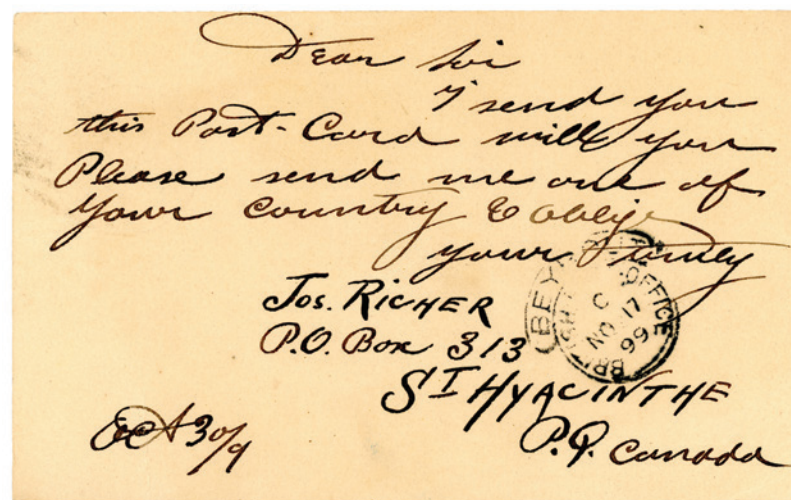 Dear Sir
I send you
this Post-Card will you
Please send me one of
your Country & oblige
yours Truely
Jos. RICHER
P.O. Box 313
ST HYACINTHE
P.Q. Canada
Oct 30/9
BRITISH POST OFFICE
BEY
C
NO 17
99